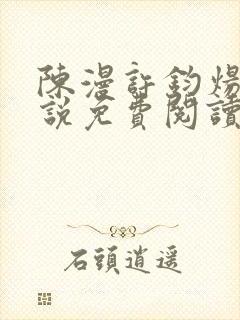 陳漫許鈞煬
說免費閱讀
石頭逍遥